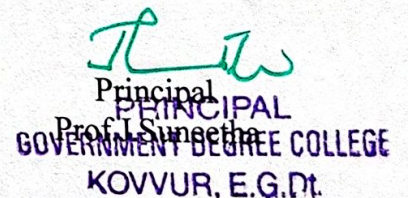 Principal
PRINCIPAL
Prof.J.Suneetha
GOVERNMENT DEGREE COLLEGE
KOVVUR, E.G.Dt.